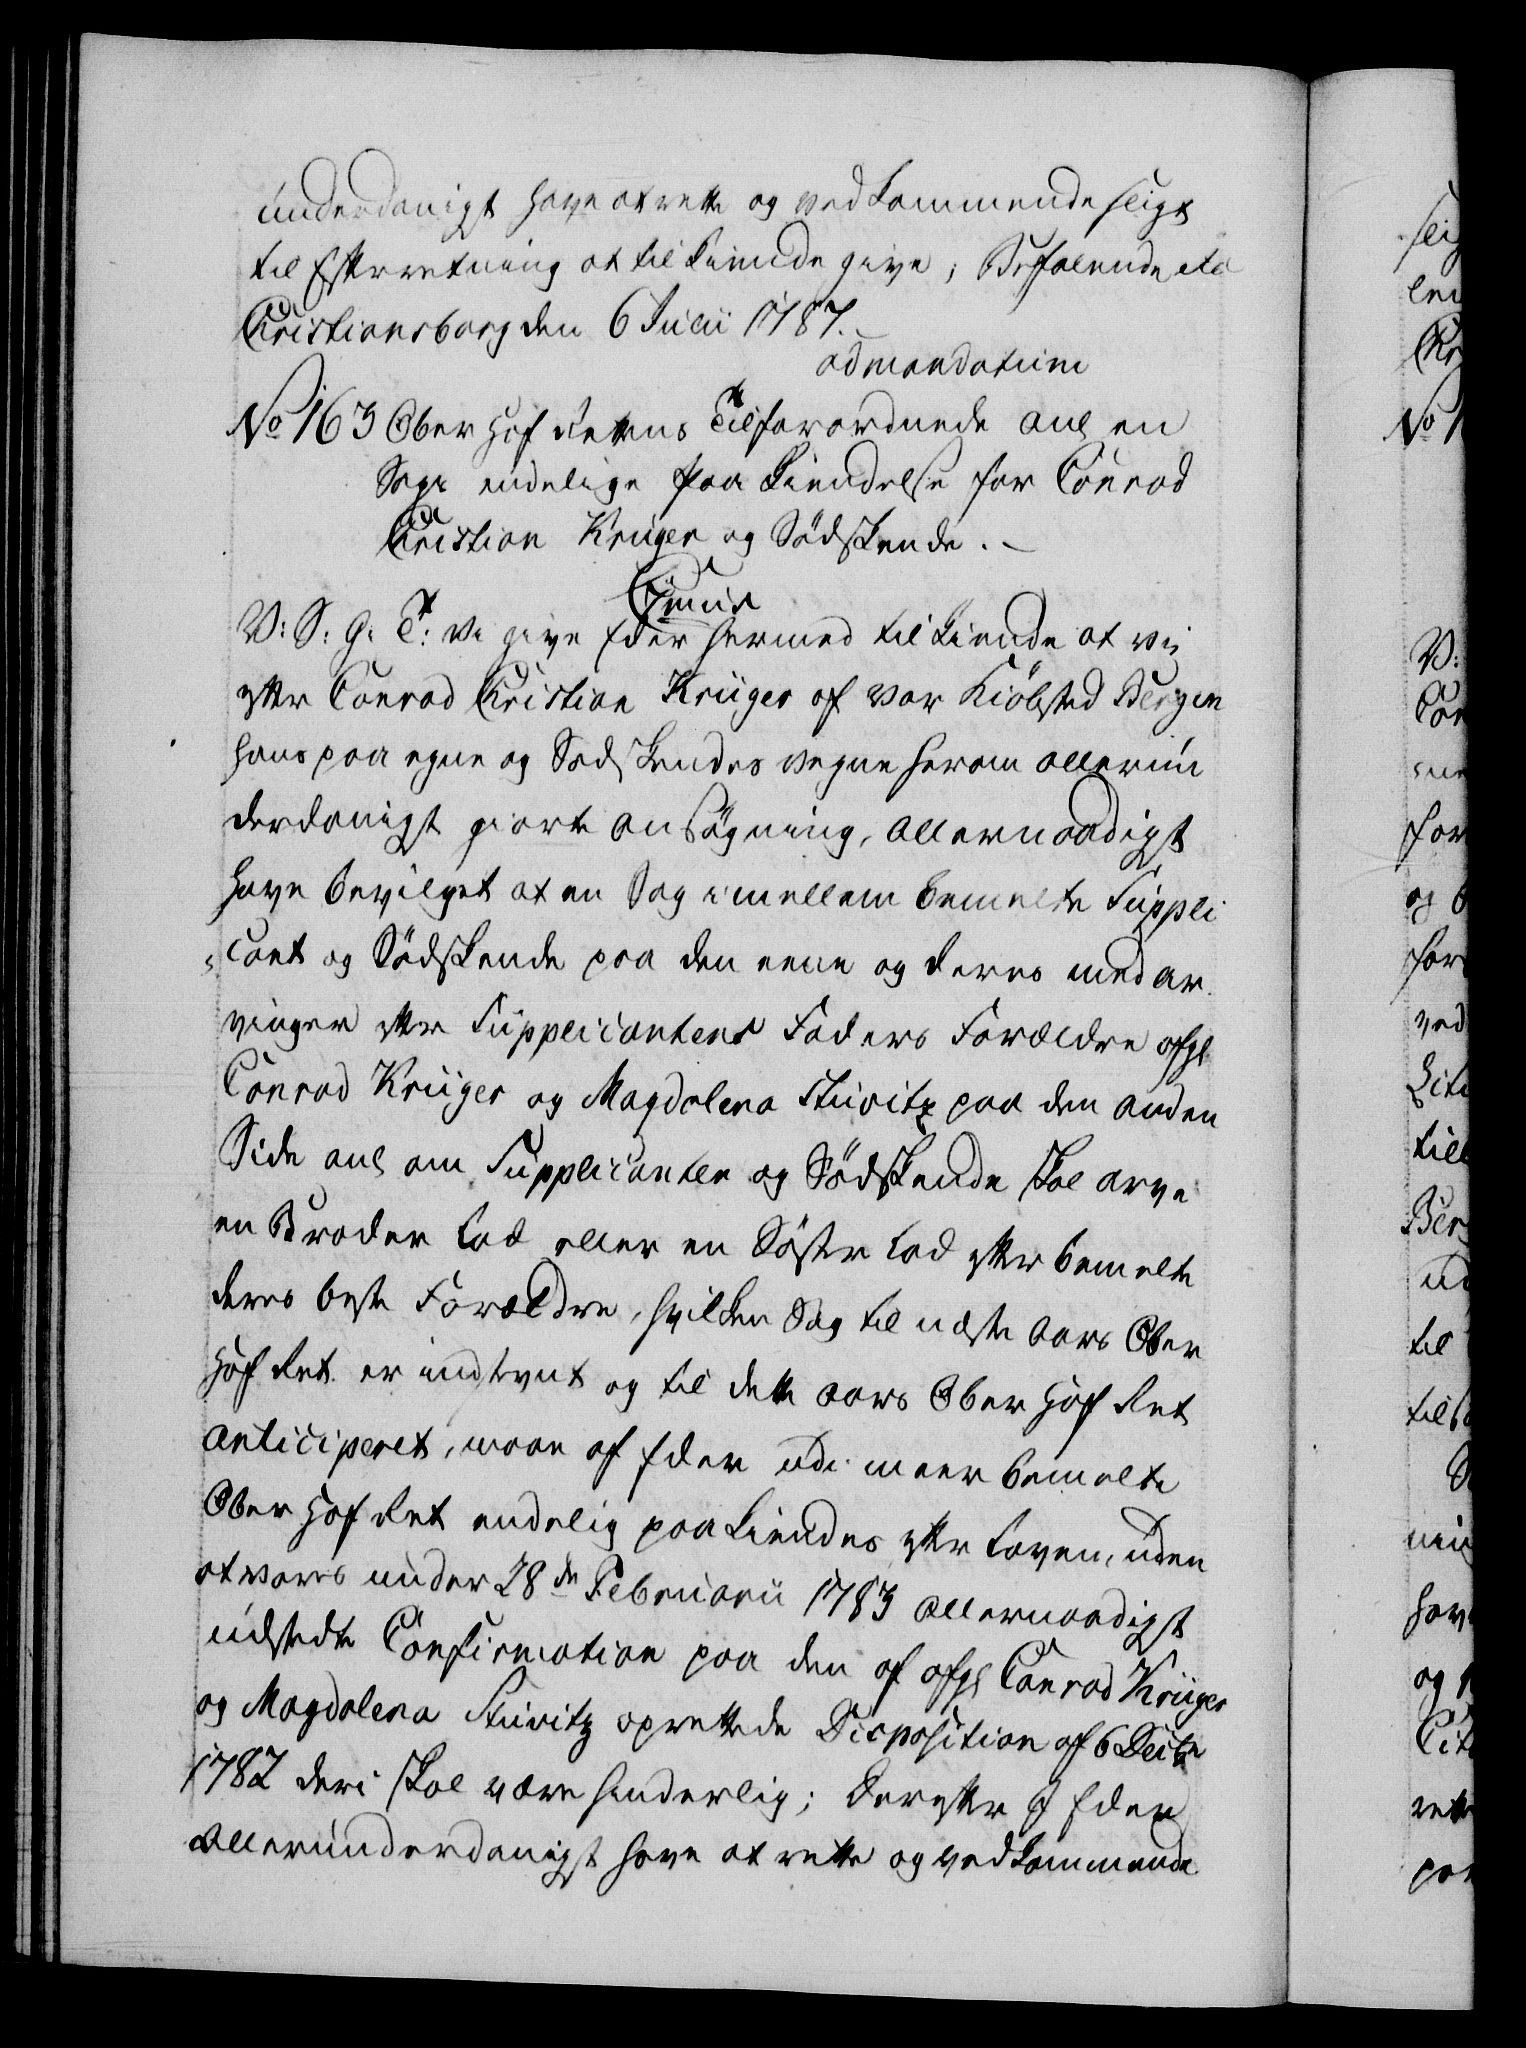 underdanigst have at rette og vedkommende sligt
til Efterretning at tilkiende give; Befalende etc
Christiansborg den 6 Julii 1787.
ad mandatum
No 163 Ober Hof Rettens Tilforordnede anl en
Sags endelige paa Kiendelse for Conrad
Christian Krüger og Södskende.
C7mus
V: S: G: T: Vi give Eder hermed tilkiende at vi
efter Conrad Christian Krüger af vor Kiöbsted Bergen
hans paa egne og Sødskendes vegne herom allerun
derdanigst giorte Ansøgning, allernaadigst
have bevilget at en Sag imellem bemelte Suppli
cant og Södskende paa den eene og deres med ar
vinger efter Supplicantens Faders Forældre afgl
Conrad Krüger og Magdalena Stüvitz paa den anden
Side anl om Supplicanten og Södskende skal arve
en Broder Lod eller en Söster Lod efter bemelte
deres beste Forældre, hvilken Sag til næste Aars Ober
Hof Ret er indstevnt og til dette Aars Ober Hof Ret
anticiperet, maae af Eder udi meer bemelte
Ober Hof Ret endelig paa kiendes efter Loven, uden
at vores under 28de Februarii 1783 allernaadigst
udstedte Confirmation paa den af afgl Conrad Krüger
og Magdalena Stüvitz oprettede Disposition af 6 Decbr
1782 deri skal være hinderlig; Derefter I Eder
allerunderdanigst have at rette og vedkommende